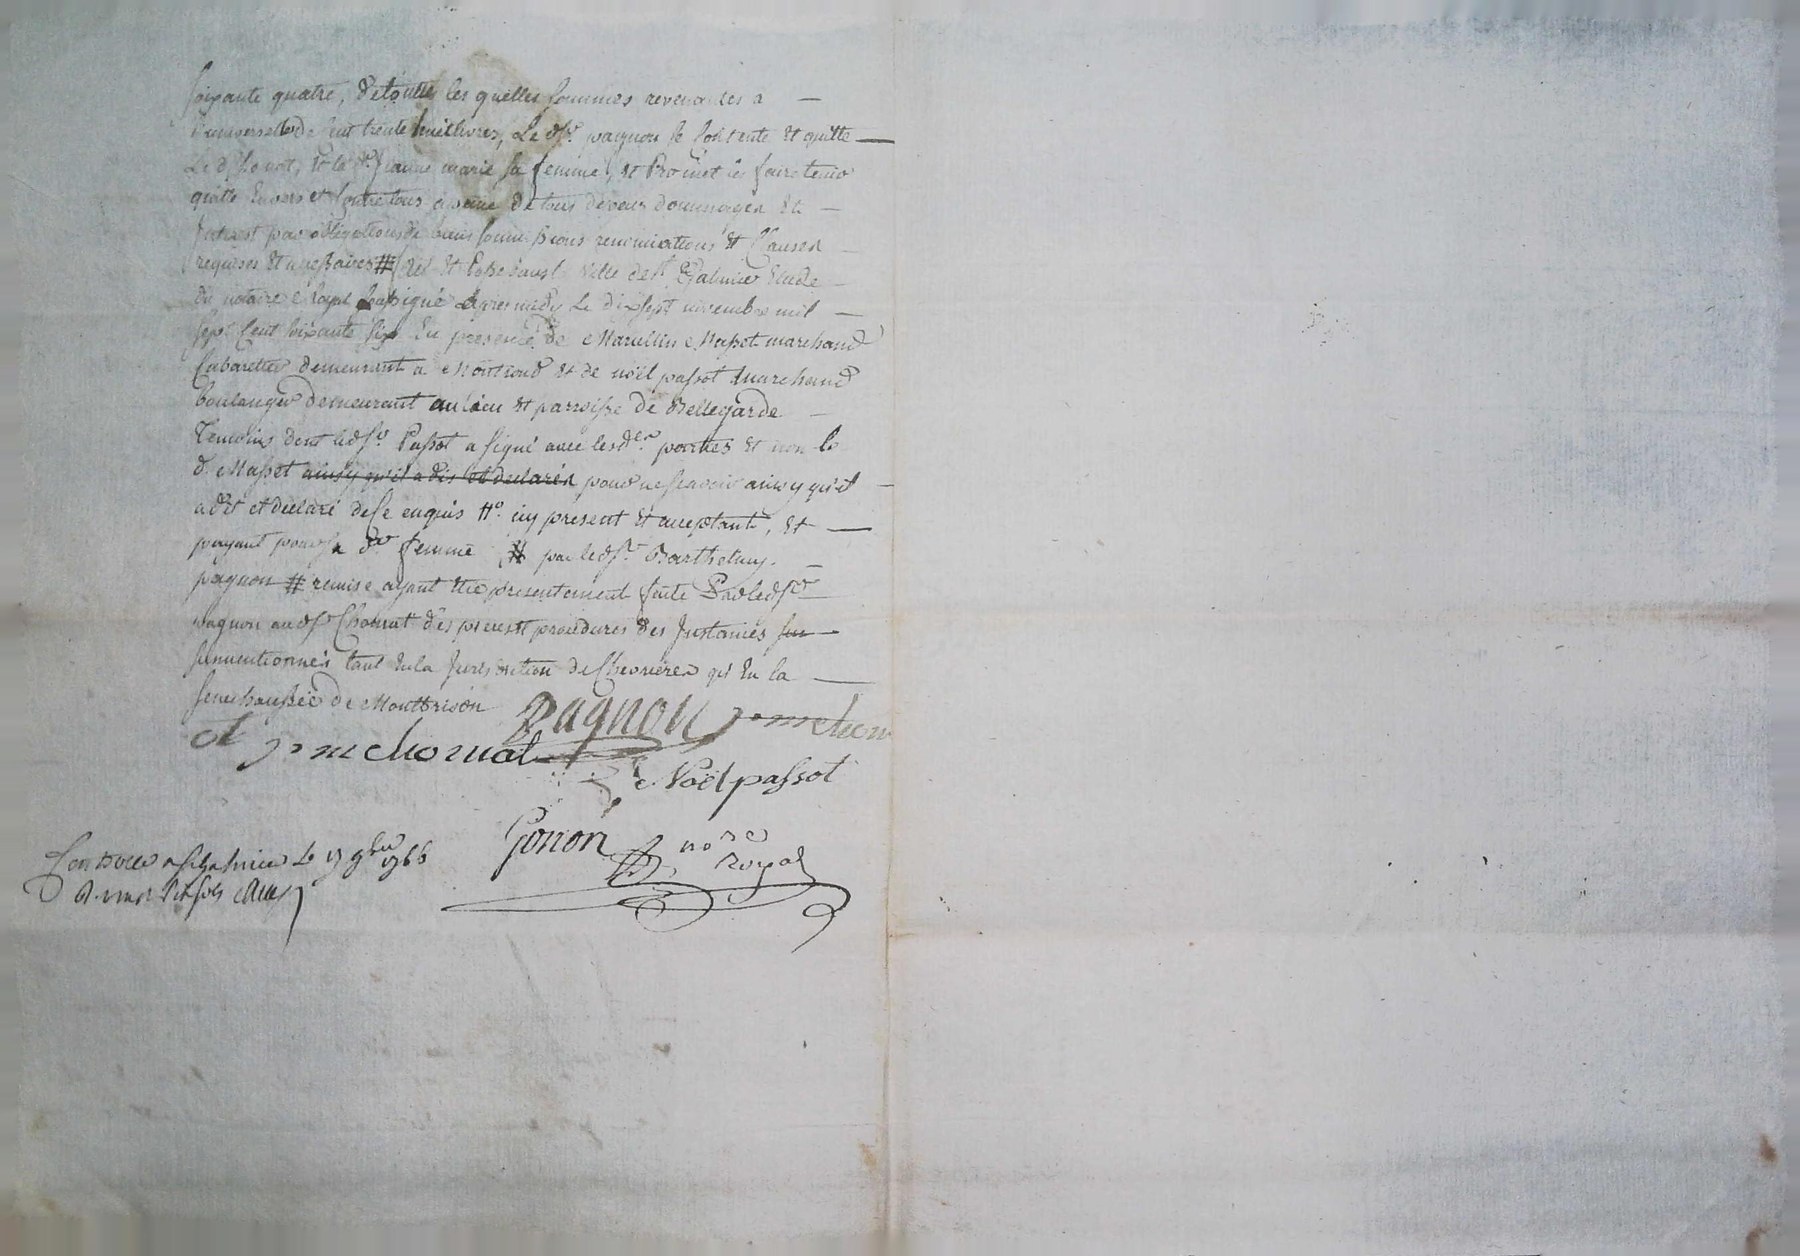 soixante quatre, de toutes les quelles sommes revenantes a —
luniverselle de Cent trente huit livres, Le dsr. pagnon se Contente et quitte —
Le d. Chomat, et la de. jeanne marie sa femme, et Promet les faire tenir
quitte Envers et Contre tous a peine de tous depens dommages et —
Interest par obligations de biens soumissions renonciations et Clauses —
requises et necessaires # fait et Passé aud. Ville de St. Galmier Etude —
du notaire Royal soussigné apres midy Le dix sept novembre mil —
sept Cent soixante six En presence de Marcellin Masset marchand
Cabaretier demeurant a Montrond et de noël passot marchand
boulanger demeurant au lieu et parroisse de Bellegarde —
Temoins dont ledsr. Passot a signé avec lesdes. parties et non le
d. Masset ainsy qu'il a dis et declarés pour ne scavoir ainsy qu'il —
a dit et declaré de Ce enquis #o. icy present et acceptant, et —
payant pour sa de. femme # par ledsr. Barthelmy —
pagnon # remise ayant Eté presentement faite Par ledsr —
pagnon audsr Chomat des pieces et procedures des Instances su
susmentionnés tant En la Jurisdition de Chevrieres qu'En la —
senechaussée de Montbrison
Pagnon j-m chom
et j-m chomat
Noël passot
Gonon nore Royal
Controllé a st galmier Le 17 9bre 1766